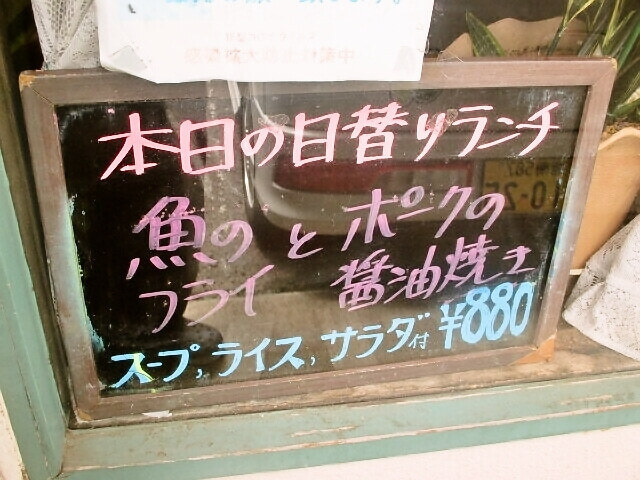 本日の日替りランチ
魚の と ポークの
フライ 醤油焼き
スープ,ライス,サラダ付 ¥880